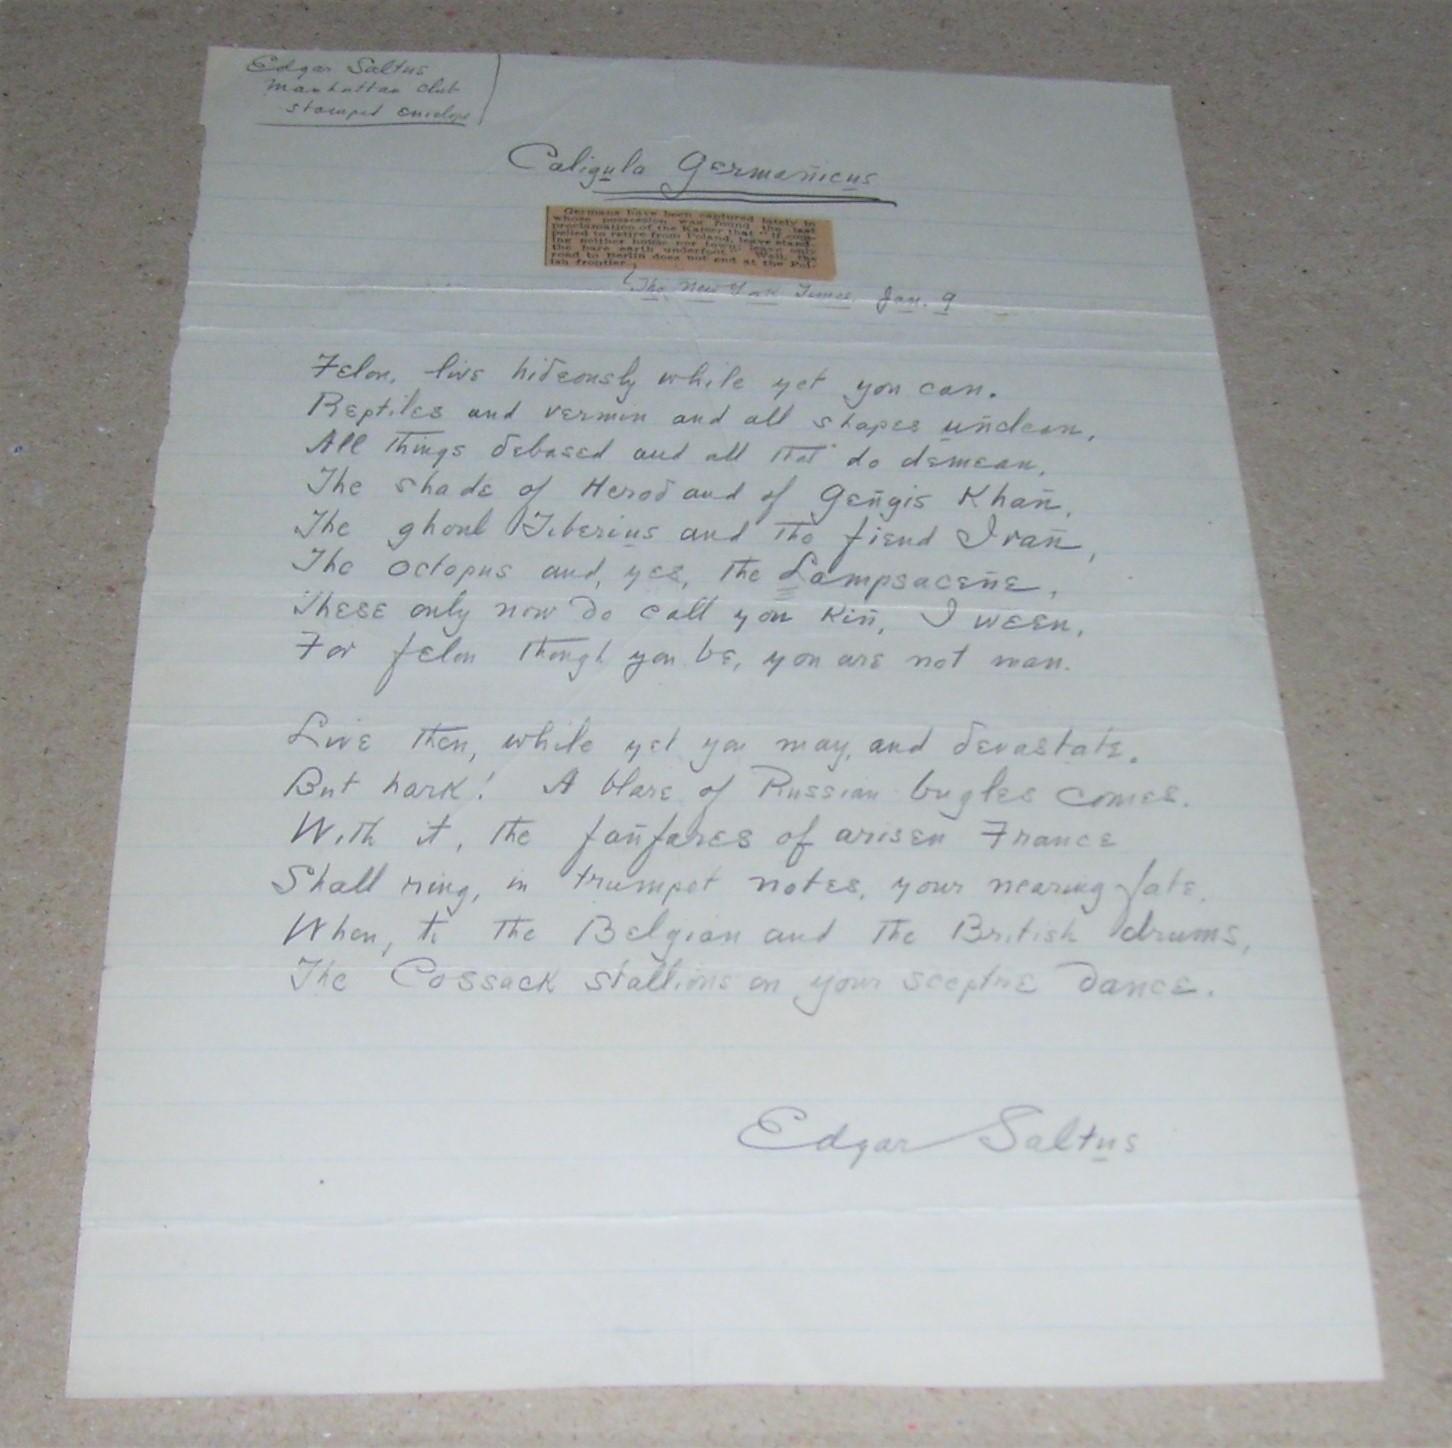 Edgar Saltus
Manhattan Club
stamped envelope
Caligula Germanicus
Germans have been captured lately in
whose possession was found the last
proclamation of the Kaiser that "if com-
pelled to retire from Poland, leave stand-
ing neither house nor town; leave only
the bare earth underfoot." Well, the
road to Berlin does not end at the Pol-
ish frontier.
The New York Times, Jan. 9
Felon, live hideously while yet you can.
Reptiles and vermin and all shapes unclean,
All things debased and all that do demean,
The shade of Herod and of Gengis Khan,
The ghoul Tiberius and the fiend Ivan,
The octopus and, yes, the Lampsacene,
These only now do call you kin, I ween,
For felon though you be, you are not man.
Live then, while yet you may, and devastate.
But hark! A blare of Russian bugles comes.
With it, the fanfares of arisen France
Shall ring, in trumpet notes, your nearing fate,
When, to the Belgian and the British drums,
The Cossack stallions on your sceptre dance.
Edgar Saltus